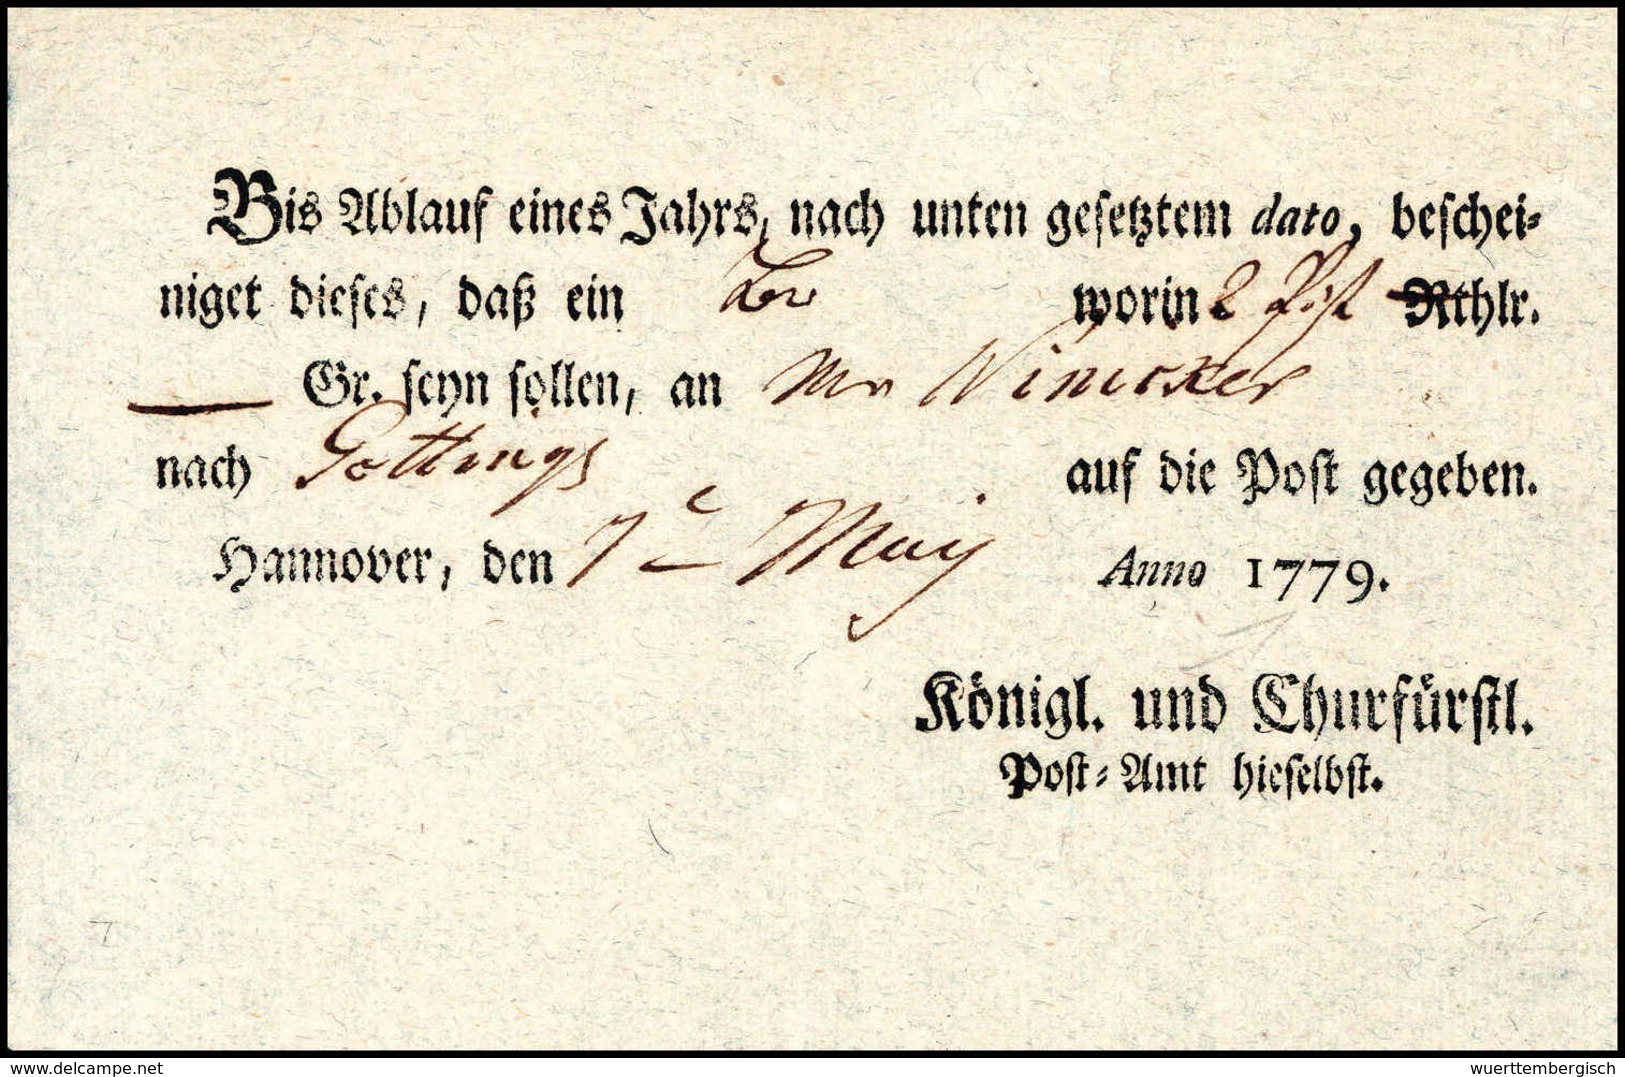 Bis Ablauf eines Jahrs, nach unten gesetztem dato, beschei-
niget dieses, daß ein worin 2 Pist Rthlr.
Gr. seyn sollen, an Mr
nach Göttingen auf die Post gegeben.
Hannover, den 7 May Anno 1779.
Königl. und Churfürstl.
Post-Amt hieselbst.
www.delcampe.net
wuerttembergisch